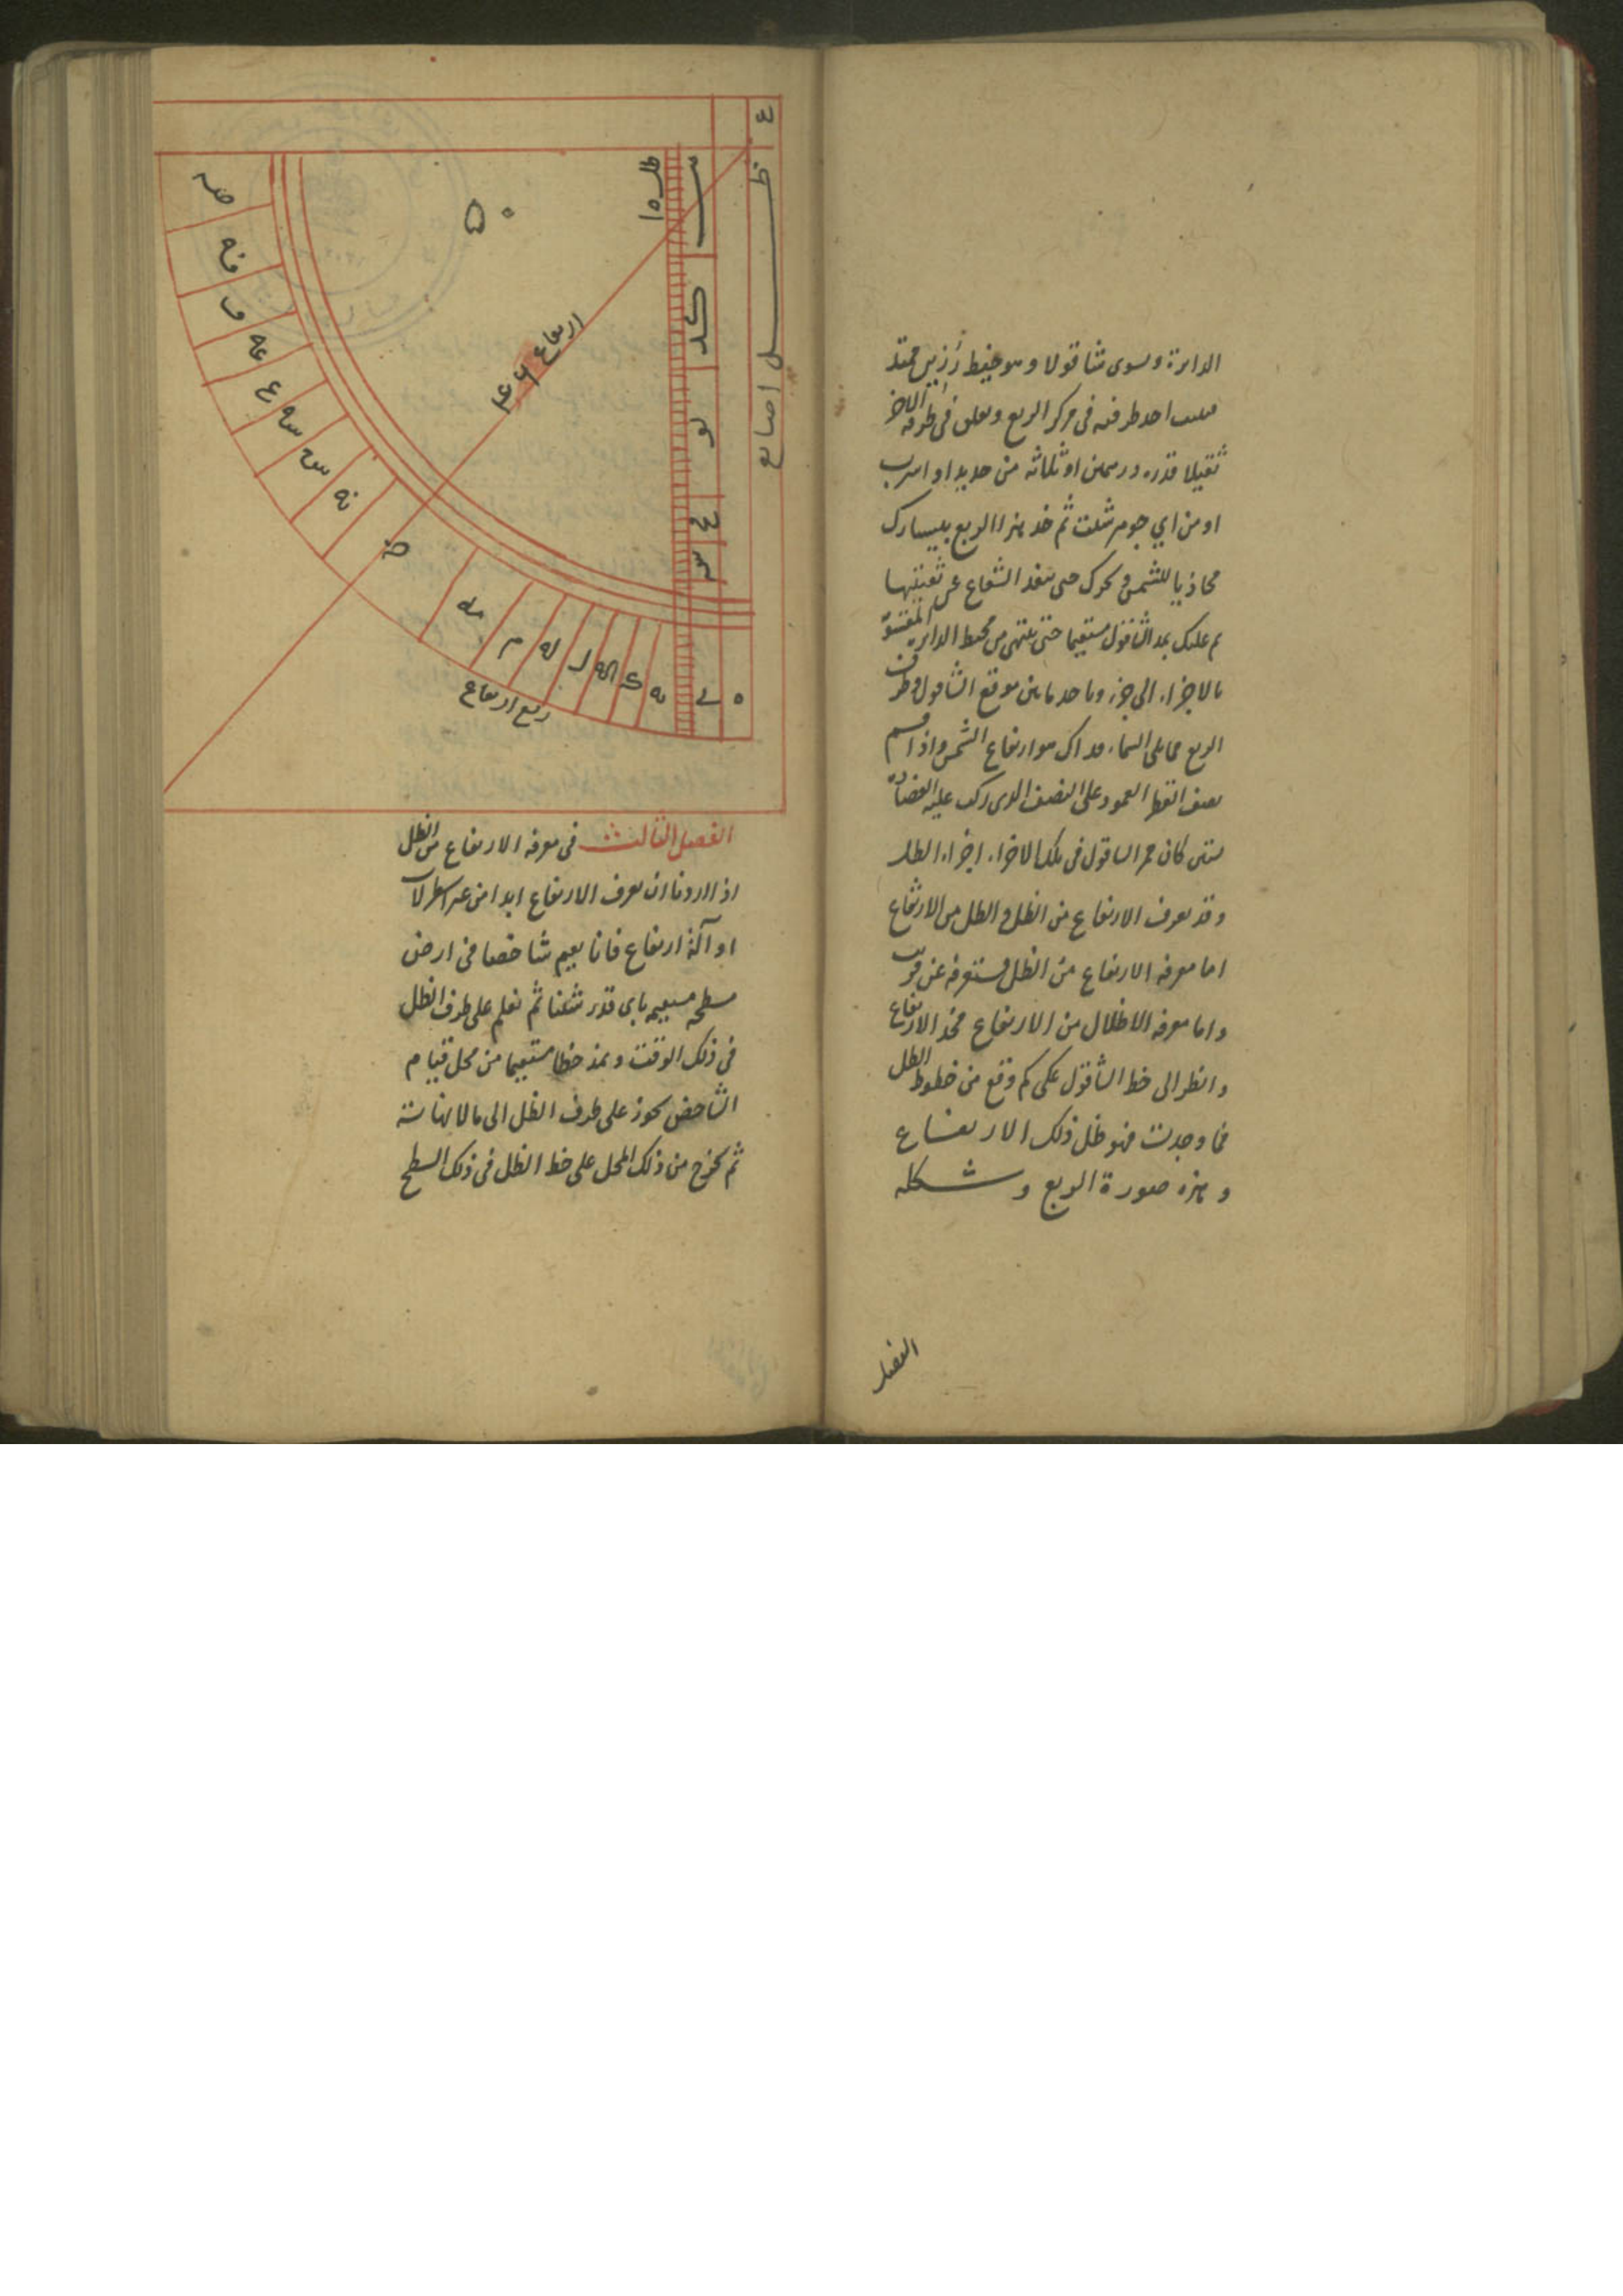 الدايرة وسوى شاقولا وهو خيط رزين ممتد
احد طرفيه فى مركز الربع ويعلق فى طرفه الاخر
ثقيلا قدره درهمين او ثلاثه من حديد او اسرب
او من اي جوهر شئت ثم خذ هذا الربع بيسارك
محاذيا للشمس وحرك حتى ينفذ الشعاع عن ثقبتيها
ثم عليك بمد الشاقول مستقيما حتى ينتهى من محيط الدايره المقسومة
بالاجزاء الى جزء وما حد ما بين موقع الشاقول وطرف
الربع مما يلى السماء فذاك هو ارتفاع الشمس واذا قسم
نصف القطر العمود على النصف الذى ركب عليه العضادة
كان ممر الشاقول فى تلك الاجزاء اجزاء الظل
وقد يعرف الارتفاع من الظل والظل من الارتفاع
اما معرفه الارتفاع من الظل فستعرفه عن قريب
واما معرفه الاظلال من الارتفاع فخذ الارتفاع
وانظر الى خط الشاقول على كم وقع من خطوط الظل
فما وجدت فهو ظل ذلك الارتفاع
وهذه صورة الربع وشكله
الفصل
ظل اصابع
كد
لو
مح
س
ارتفاع
ربع ارتفاع
الفصل الثالث فى معرفه الارتفاع من الظل
اذا اردنا ان نعرف الارتفاع ابدا من غير اسطرلاب
او آلة ارتفاع فانا نقيم شاخصا فى ارض
سطحه مستقيمه باى قدر شئنا ثم نعلم على طرف الظل
فى ذلك الوقت ونمد خطا مستقيما من محل قيام
الشاخص يجوز على طرف الظل الى ما لا نهاية
ثم نخرج من ذلك المحل على خط الظل فى ذلك السطح